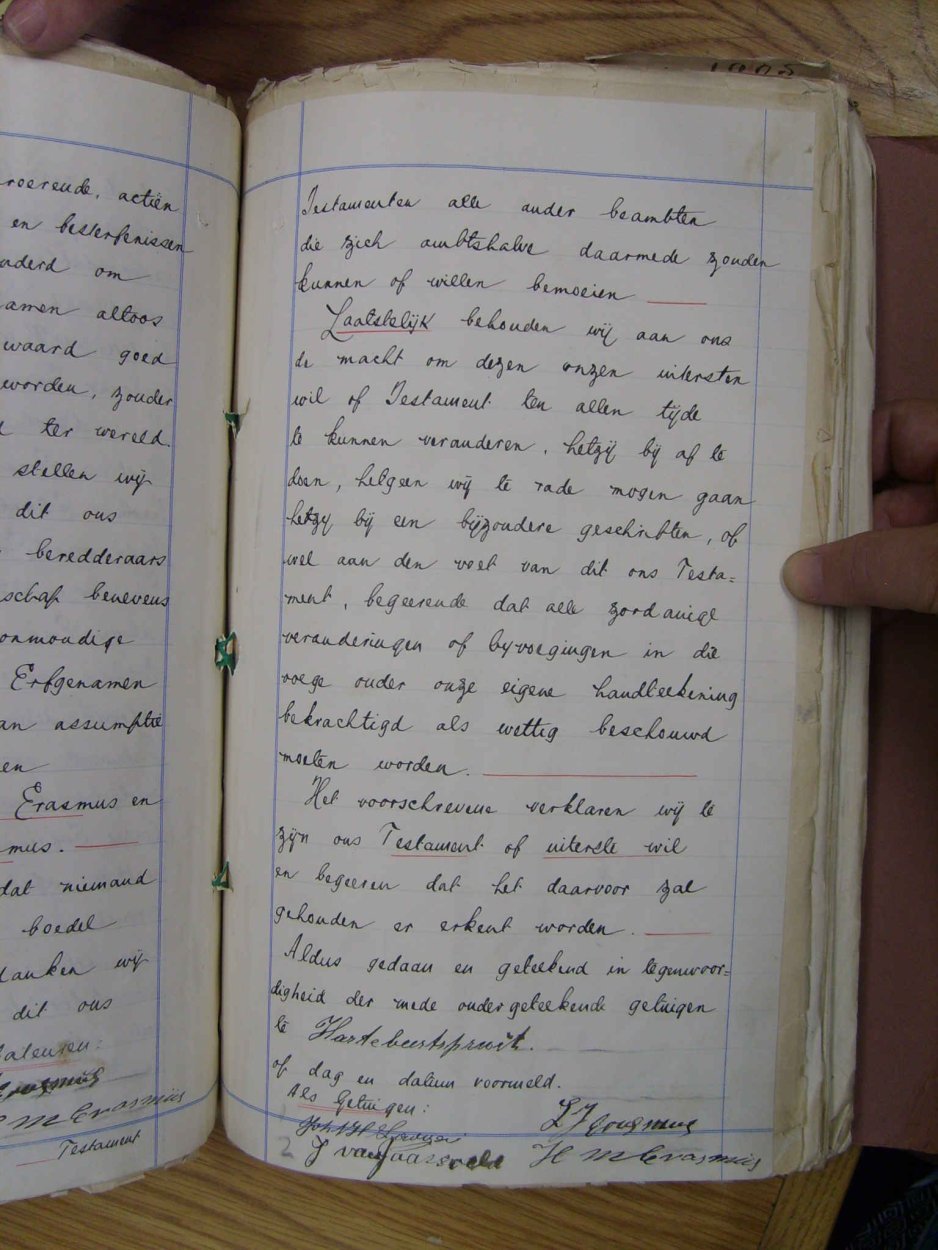 roerende, actiën
en besterfenissen
om
amen altoos
waard goed
worden, zouder
ter wereld.
stellen wij
dit ous
beredderaars
schap benevens
onmoudige
Erfgenamen
an assumptie
en
Erasmus en
mus.
dat niemand
boedel
danken wij
dit ous
Erasmus
H M Erasmus
Testament
1905
Testamenten alle ander beambten
die zich ambtshalve daarmede zouden
kunnen of willen bemoeien
Laatstelijk behouden wij aan ons
de macht om dezen onzen uitersten
wil of Testament ten allen tijde
te kunnen veranderen, hetzij bij af te
doen, hetgeen wij te rade mogen gaan
hetzij bij een bijzondere geschriften, of
wel aan den voet van dit ons Testa=
ment, begeerende dat alle zoodanige
veranderingen of byvoegingen in die
voege onder onze eigene handteekening
bekrachtigd als wettig beschouwd
moeten worden.
Het voorschrevene verklaren wij te
zijn ons Testament of uiterste wil
en begeeren dat het daarvoor zal
gehouden er erkent worden.
Aldus gedaan en geteekend in tegenwoor=
digheid der mede ondergeteekende getuigen
te Hartebeestspruit.
of dag en datum voormeld.
Als Getuigen:
J van Jaarsveld H M Erasmus
2